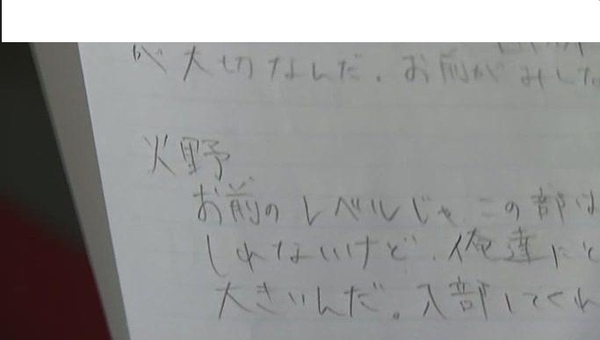 が大切なんだ。お前がみした
火野
お前のレベルじゃこの部は
しれないけど、俺達にと
大きいんだ。入部してくれ